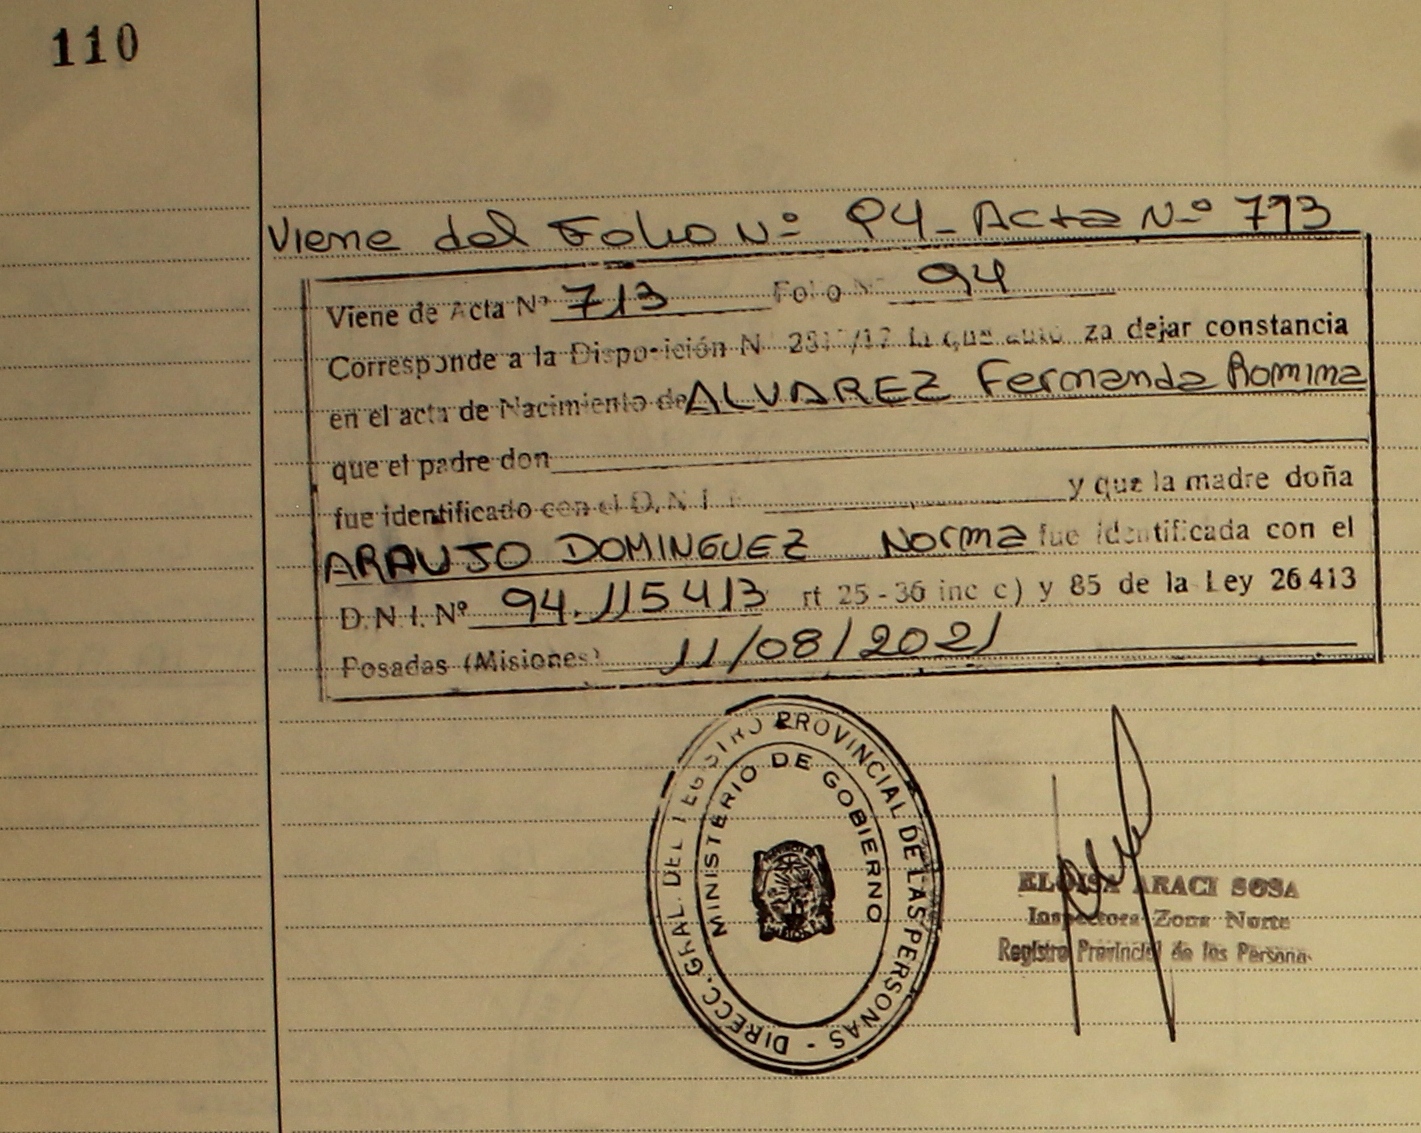 110
Viene del Folio Nº 94_ Acta Nº 713
Viene de Acta Nº 713 Folio Nº 94
Corresponde a la Disposición N la que autoriza dejar constancia
en el acta de Nacimiento de ALVAREZ Fernanda Romina
que el padre don
fue identificado con el D.N.I. y que la madre doña
ARAUJO DOMINGUEZ Norma fue identificada con el
D.N.I. Nº 94.115413 rt 25 - 36 inc c) y 85 de la Ley 26 413
Posadas (Misiones) 11/08/2021
DIRECC. GRAL. DEL REGISTRO PROVINCIAL DE LAS PERSONAS -
MINISTERIO DE GOBIERNO
ELOISA ARACI SOSA
Inspectora Zona Norte
Registro Provincial de las Persona